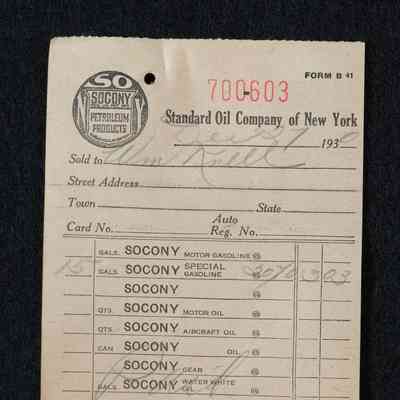 SO
SOCONY
PETROLEUM
PRODUCTS
FORM B 41
700603
Standard Oil Company of New York
1930
Sold to Wm
Street Address
Town State
Card No. Auto Reg. No.
GALS. SOCONY MOTOR GASOLINE @
15 GALS. SOCONY SPECIAL GASOLINE @ 303
SOCONY @
QTS. SOCONY MOTOR OIL @
QTS. SOCONY AIRCRAFT OIL @
CAN SOCONY OIL @
SOCONY GEAR @
GALS. SOCONY WATER WHITE OIL @